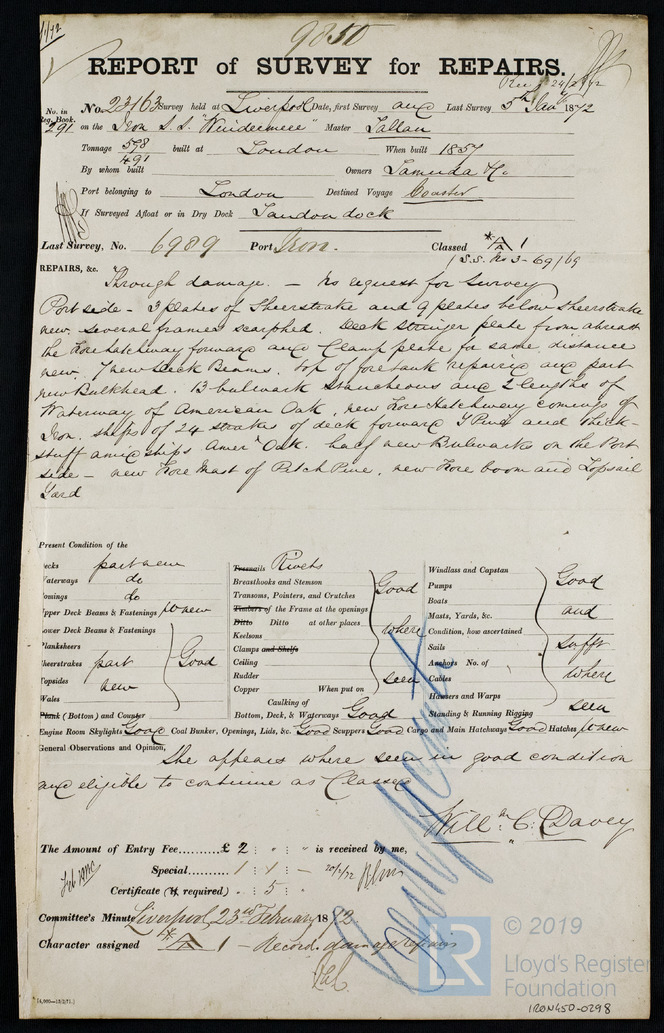 9850
REPORT of SURVEY for REPAIRS.
No. in Reg. Book. No. 23163 Survey held at Liverpool Date, first Survey and Last Survey 5th Jany 1872
291 on the Iron S.S. "Windermere" Master
Tonnage 598 / 491 built at London When built 1857
By whom built Owners Samuda & Co.
Port belonging to London Destined Voyage Coaster
If Surveyed Afloat or in Dry Dock Sandon dock
Last Survey, No. 6989 Port Iron. Classed *A 1
S.S. No 3 - 69/69
REPAIRS, &c. Through damage. - No request for Survey
Port side - 3 plates of Sheerstrake and 9 plates below Sheerstrake
new, several frames scarphed. Deck stringer plate from abreast
the Forehatchway forward and Clamp plate for same distance
new. 7 new Deck Beams. top of foretank repaired and part
new Bulkhead. 13 bulwark Stancheons and 2 lengths of
Waterway of American Oak, new Fore Hatchway comings of
Iron. of 24 strakes of deck forward Y Pine and thick-
stuff amidships Amern Oak. half new Bulwarks on the Port
side - new Fore Mast of Pitch Pine, new Fore boom and Topsail
Yard
Present Condition of the
Decks part new
Waterways do
Comings do
Upper Deck Beams & Fastenings pt new
Lower Deck Beams & Fastenings
Planksheers
Sheerstrakes part Good
Topsides new
Wales
Plank (Bottom) and Counter
Treenails Rivets
Breasthooks and Stemson Good
Transoms, Pointers, and Crutches
Timbers of the Frame at the openings
Ditto Ditto at other places where
Keelsons
Clamps and Shelfs
Ceiling
Rudder seen
Copper When put on
Caulking of
Bottom, Deck, & Waterways Good
Windlass and Capstan Good
Pumps
Boats and
Masts, Yards, &c.
Condition, how ascertained
Sails sufft
Anchors No. of
Cables where
Hawsers and Warps
Standing & Running Rigging seen
Engine Room Skylights Good Coal Bunker, Openings, Lids, &c. Good Scuppers Good Cargo and Main Hatchways Good Hatches pt new
General Observations and Opinion, She appears where seen in good condition
and eligible to continue as Classed
Willm. C. Davey
The Amount of Entry Fee......... £ 2 : : " is received by me,
Special......... 1 : 1 : - 20/1/72
Certificate (if required) . : 5 :
Committee's Minute Liverpool, 23rd February 1872
Character assigned *A 1 - Record damage repairs
[4,000—13/2/71.]
© 2019
LR
Lloyd's Register
Foundation
IRON450-0298